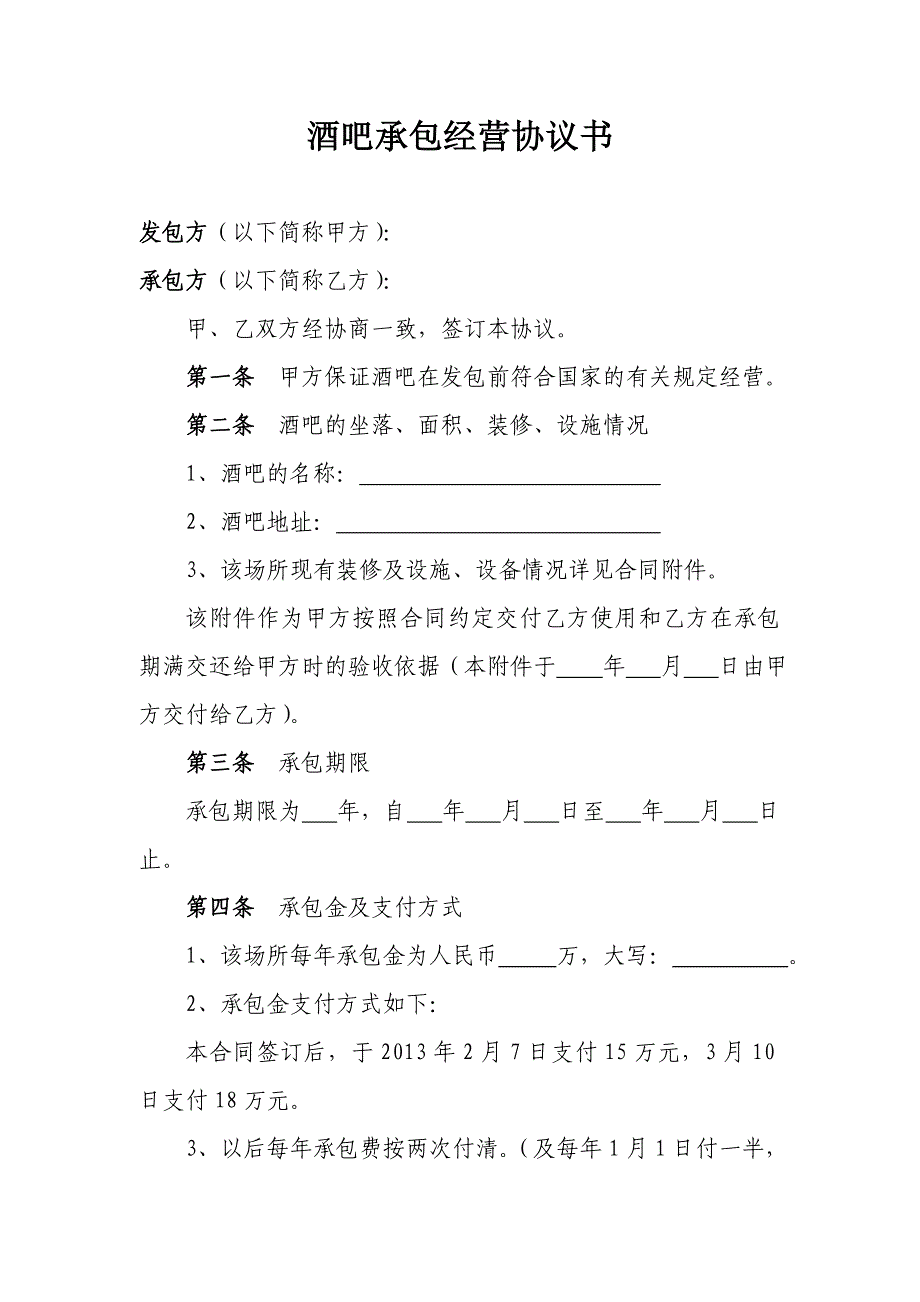 酒吧承包经营协议书
发包方（以下简称甲方）：
承包方（以下简称乙方）：
甲、乙双方经协商一致，签订本协议。
第一条　甲方保证酒吧在发包前符合国家的有关规定经营。
第二条　酒吧的坐落、面积、装修、设施情况
1、酒吧的名称：__________________________
2、酒吧地址：____________________________
3、该场所现有装修及设施、设备情况详见合同附件。
该附件作为甲方按照合同约定交付乙方使用和乙方在承包
期满交还给甲方时的验收依据（本附件于____年___月___日由甲
方交付给乙方）。
第三条　承包期限
承包期限为___年，自___年___月___日至___年___月___日
止。
第四条　承包金及支付方式
1、该场所每年承包金为人民币_____万，大写：__________。
2、承包金支付方式如下：
本合同签订后，于 2013 年 2 月 7 日支付 15 万元，3 月 10
日支付 18 万元。
3、以后每年承包费按两次付清。（及每年 1 月 1 日付一半，